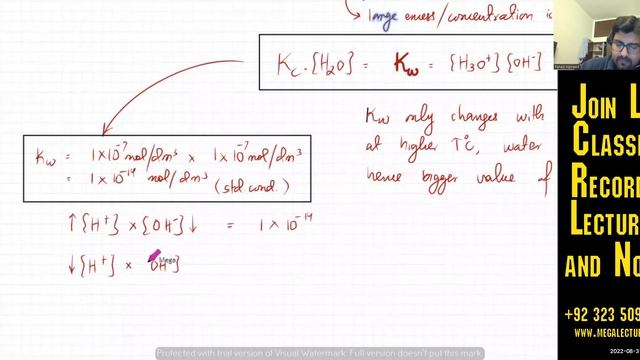 ↳ large excess/concentration is
Kc.[H2O] = Kw = [H3O+][OH-]
Kw only changes with
at higher T°C, water
hence bigger value of
Kw = 1×10^-7 mol/dm³ × 1×10^-7 mol/dm³
= 1×10^-14 mol/dm³ (std cond.)
↑[H+] × [OH-]↓ = 1 × 10^-14
↓[H+] × OH-]
JOIN L
CLASSE
RECORE
LECTURE
AND NO
+92 323 509
www.megalectur
2022-08-3
Protected with trial version of Visual Watermark. Full version doesn't put this mark.